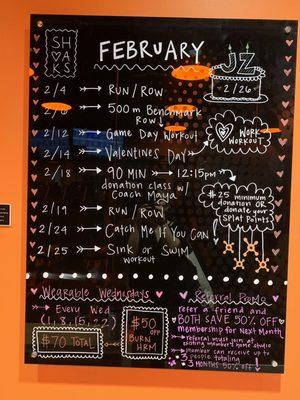 SHAKS
FEBRUARY
JZ
2/26
2/4 RUN / ROW
2/6 500m Benchmark
ROW
2/12 Game Day Workout
2/14 Valentines Day
WORK
WORKOUT
2/18 90 MIN 12:15pm
donation class w/
Coach Maya
$25 minimum
donation OR
donate your
Splat Points
2/19 RUN / ROW
2/24 Catch Me If You Can
2/25 Sink or Swim
workout
Wearable Wednesdays
Every Wed
(1, 8, 15, 22)
$70 TOTAL
$50
OFF
BURN
HRM
Referral Promo
refer a friend and
BOTH SAVE 50% OFF
membership for Next Month
referral must join at
existing member's home studio
member can receive up to
3 people totaling
3 MONTHS 50% OFF